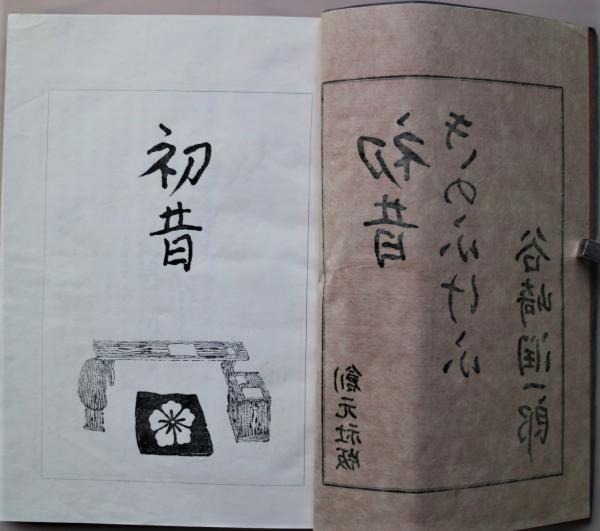 初昔
初昔
きのふけふ
谷崎潤一郎
創元社版